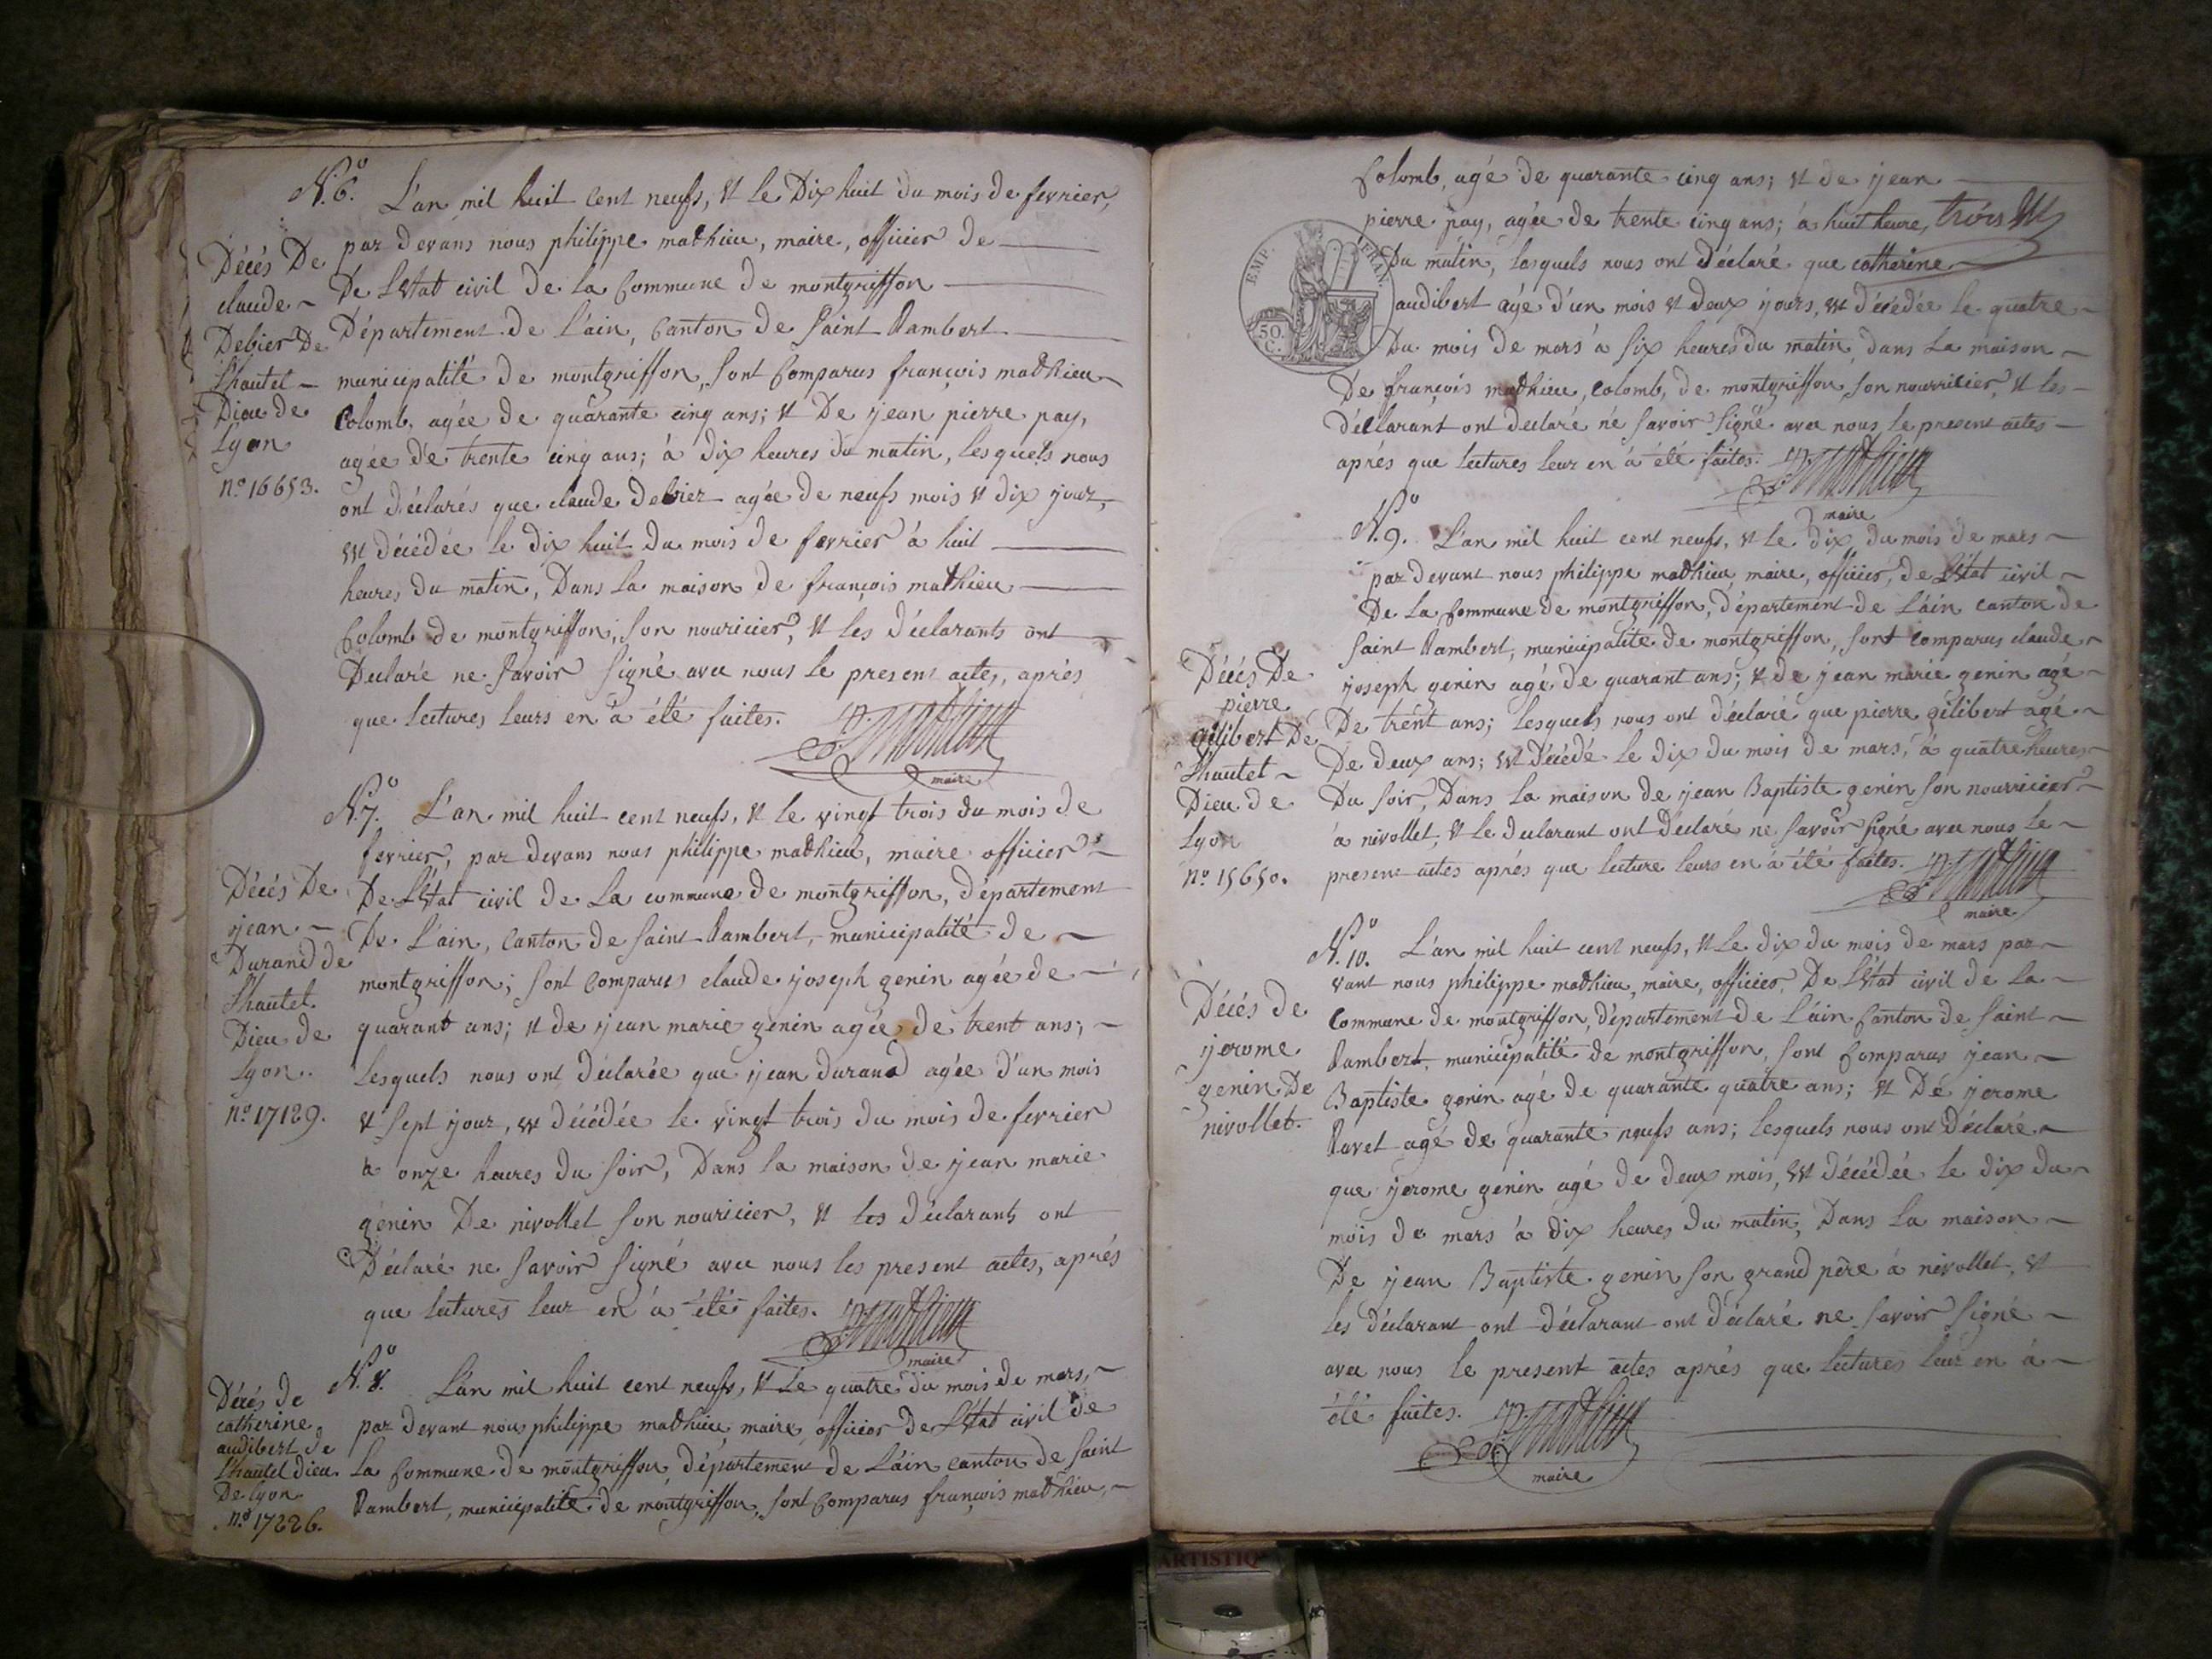 N.º 6. L'an mil huit cent neufs, et le Dix huit du mois de fevrier,
Décés De
claude
Debier De
Lhautel
Dieu de
Lyon
nº 16653.
par devans nous philippe mathieu, maire, officier de
De L'Etat civil de la Commune de montgriffon
Département de L'ain, Canton de Saint Rambert
municipalité de montgriffon, sont Comparus françois mathieu
Colomb, agée de quarante cinq ans; et De jean pierre pay,
agée de trente cinq ans; à dix heures du matin, lesquels nous
ont déclarés que claude debier agée de neufs mois et dix jour,
est décédée le dix huit du mois de fevrier à huit
heures du matin, Dans la maison de françois mathieu
Colomb de montgriffon, son nouricier, et les déclarants ont
Déclaré ne Savoir Signé avec nous le present actes, aprés
que lectures leurs en à été faites. P. mathieu
maire
N.º 7. L'an mil huit cent neufs, et le vingt trois du mois de
fevrier, par devans nous philippe mathieu, maire officier
Décés De
jean
Durand de
Lhautel
Dieu de
Lyon.
nº 17129.
De L'Etat civil de La commune de montgriffon, département
De L'ain, Canton de Saint Rambert, municipalité de
montgriffon; sont Comparus claude joseph genin agée de
quarant ans; et de jean marie genin agée de trent ans;
Lesquels nous ont déclarée que jean durand agée d'un mois
et sept jour, est décédée le vingt trois du mois de fevrier
à onze heures du soir, Dans la maison de jean marie
genin De nivollet son nouricier, et les déclarants ont
Déclaré ne Savoir Signé avec nous les present actes, aprés
que lectures leur en à étés faites. P. mathieu
maire
Décés de
catherine
audibert de
Lhautel dieu
De Lyon
nº 17226.
N.º 8. L'an mil huit cent neufs, et Le quatre du mois de mars,
par devant nous philippe mathieu, maire, officier De L'Etat civil de
La Commune de montgriffon, département de L'ain canton de Saint
Rambert, municipalité de montgriffon, sont Comparus françois mathieu,
Colomb, agé de quarante cinq ans; et de jean
pierre pay, agée de trente cinq ans; à huit heure, trois
EMP. FRAN.
50
C.
Du matin, lesquels nous ont déclaré que catherine
audibert agé d'un mois et deux jours, est décédée le quatre
Du mois de mars à six heures du matin dans La maison
De françois mathieu, Colomb, de montgriffon son nourricier, et les
Déclarant ont declaré ne Savoir Signé avec nous le present actes
aprés que lectures leur en à été faites. P. mathieu
maire
N.º 9. L'an mil huit cent neufs, et le dix du mois de mars
par devant nous philippe mathieu, maire, officier, de L'Etat civil
De La Commune de montgriffon, département de L'ain canton de
Saint Rambert, municipalité de montgriffon, sont comparus claude
Décés De
pierre
gilibert De
Lhautel
Dieu de
Lyon
nº 15650.
joseph genin agé de quarant ans; et de jean marie genin agé
De trent ans; lesquels nous ont déclaré que pierre gilibert agé
De deux ans; est décédé le dix du mois de mars, à quatre heures
Du soir, Dans la maison de jean Baptiste genin son nourricier
à nivollet, et le declarant ont déclaré ne Savoir Signé avec nous le
present actes aprés que lecture leurs en à été faites. P. mathieu
maire
N.º 10. L'an mil huit cent neufs, et Le dix du mois de mars par
vant nous philippe mathieu, maire, officier, De L'Etat civil de La
Décés de
jerome
genin De
nivollet.
Commune de montgriffon, département de L'ain Canton de Saint
Rambert, municipalité de montgriffon, sont Comparus jean
Baptiste genin agé de quarante quatre ans; et De jerome
Ravet agé de quarante neufs ans; lesquels nous ont déclaré
que jerome genin agé de deux mois, est décédée le dix du
mois de mars à dix heures du matin, Dans la maison
De jean Baptiste genin son grand père à nivollet, et
les déclarant ont déclarant ont déclaré ne Savoir Signé
avec nous le present actes aprés que lectures leur en à
été faites. P. mathieu
maire
ARTISTIQ